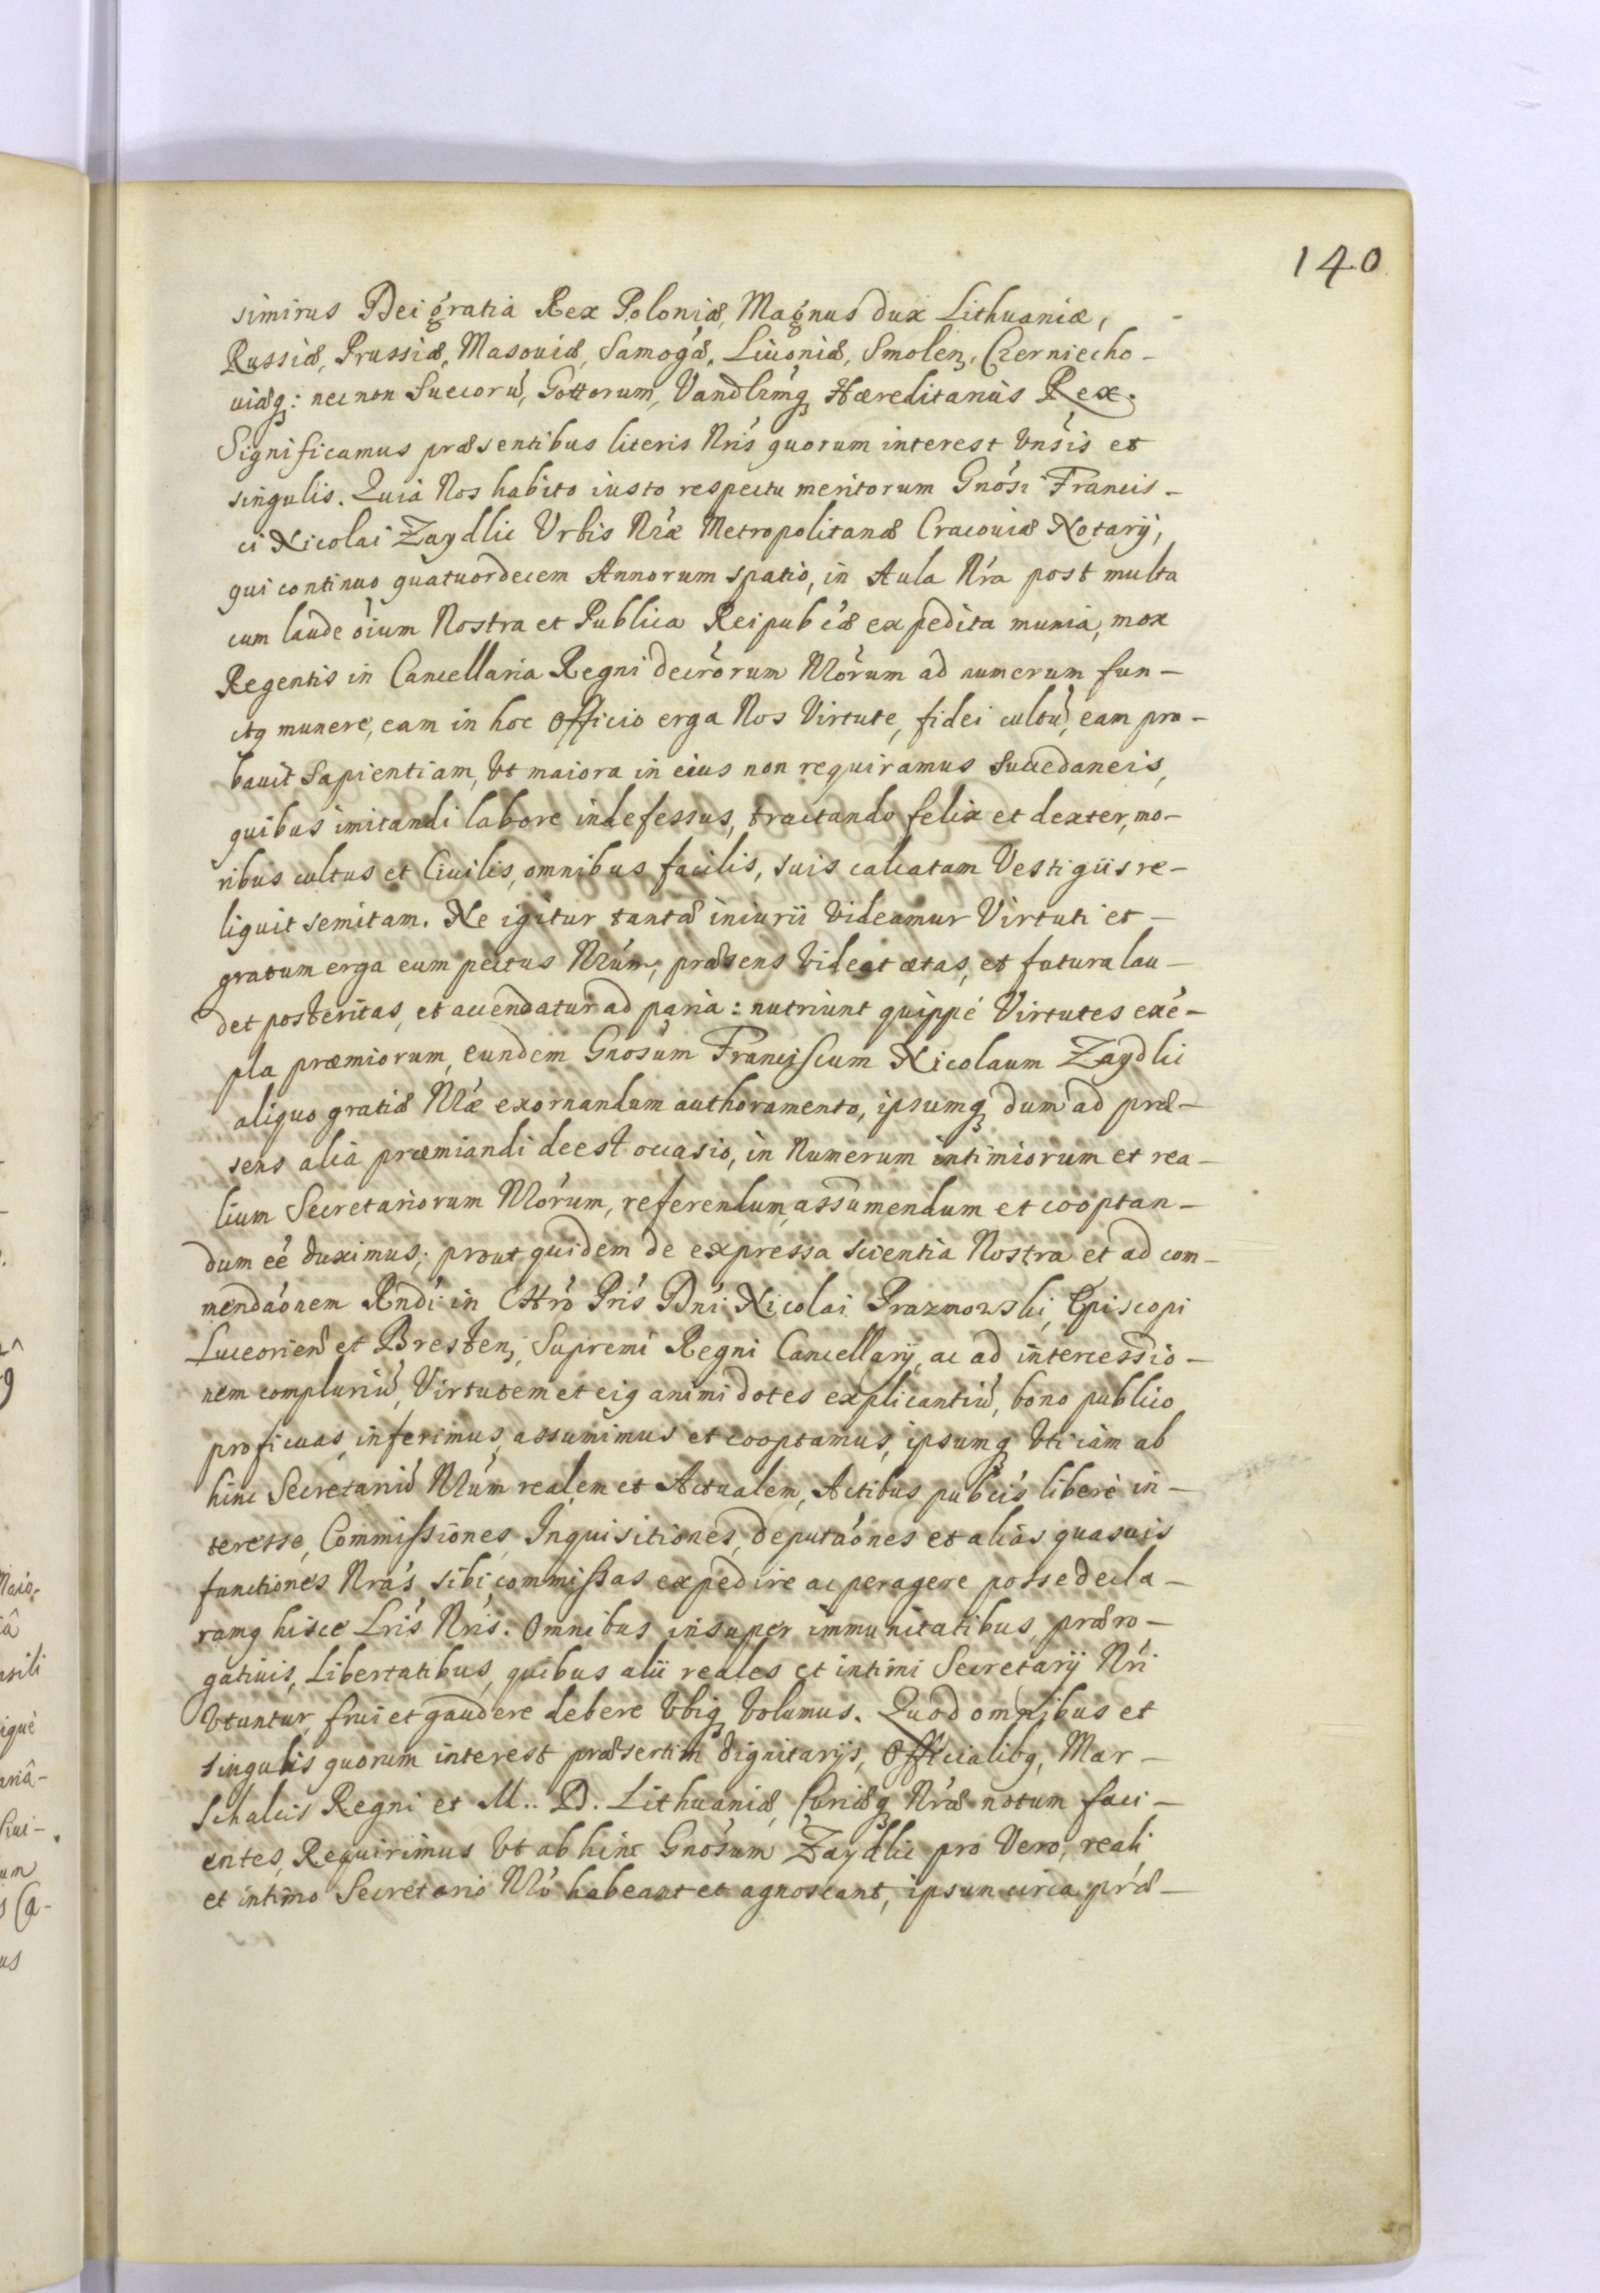 140
simirus Dei gratia Rex Poloniæ, Magnus dux Lithuaniæ,
Russiæ, Prussiæ, Masouiæ, Samogæ, Liuoniæ, Smolenꝫ, Czerniecho-
uiæqꝫ: nec non Suecorũ, Gottorum, Vandlrmqꝫ Hæreditarius Rex.
Significamus præsentibus literis Nris quorum interest Vnsis et
singulis. Quia Nos habito iusto respectu meritorum Gnosi Francis-
ci Nicolai Zaydlic Vrbis Nræ Metropolitanæ Cracouiæ Notarij,
qui continuo quatuordecem Annorum spatio, in Aula Nra post multa
cum laude oium Nostra et Publica Reipubcæ expedita munia, mox
Regentis in Cancellaria Regni decrorum Nrorum ad numerum fun-
ctq munere, eam in hoc Officio erga Nos Virtute, fidei cultũ, eam pro-
bauit Sapientiam, Vt maiora in eius non requiramus Succedaneis,
quibus imitandi labore indefessus, tractando felix et dexter, mo-
ribus cultus et Ciuilis, omnibus facilis, suis calcatam Vestigiis re-
liquit semitam. Ne igitur tantæ iniurii Videamur Virtuti et-
gratum erga eum pectus Nrum, præsens Videat ætas, et futura lau-
det posteritas, et accendatur ad paria: nutriunt quippe Virtutes exe-
pla præmiorum, eundem Gnosum Franciscum Nicolaum Zaydlic
aliquo gratiæ Nræ exornandum authoramento, ipsumqꝫ dum ad præ-
sens alia præmiandi deest occasio, in Numerum intimiorum et rea-
lium Secretariorum Nrorum, referendum, assumendum et cooptan-
dum eé duximus; prout quidem de expressa scientia Nostra et ad com-
mendaonem Rndi in Chro Pris Dni Nicolai Prazmowski, Episcopi
Luceorien et Brestenꝫ, Supremi Regni Cancellarij, ac ad intercessio-
nem compluriũ, Virtutem et eiq animi dotes explicantiũ, bono publico
proficuas, inferimus, assumimus et cooptamus, ipsumqꝫ Vti iam ab
hinc Secretariũ Nrum realem et Actualem, Actibus pubcis libere in-
teresse, Commissiones, Inquisitiones, deputaones et alias quasuis
functiones Nras sibi commissas expedire ac peragere posse decla-
ramq hisce Lris Nris. Omnibus insuper immunitatibus, præro-
gatiuis, Libertatibus, quibus alii reales et intimi Secretarij Nri
Vtuntur, frui et gaudere debere Vbiqꝫ Volumus. Quod omnibus et
singulis quorum interest præsertim dignitarijs, Officialibq, Mar-
schalcis Regni et M.. D. Lithuaniæ, Curiæqꝫ Nræ notum faci-
entes, Requirimus Vt ab hinc Gnosum Zaydlic pro Vero, reali
et intimo Secretario Nro habeant et agnoscant, ipsum circa præ-